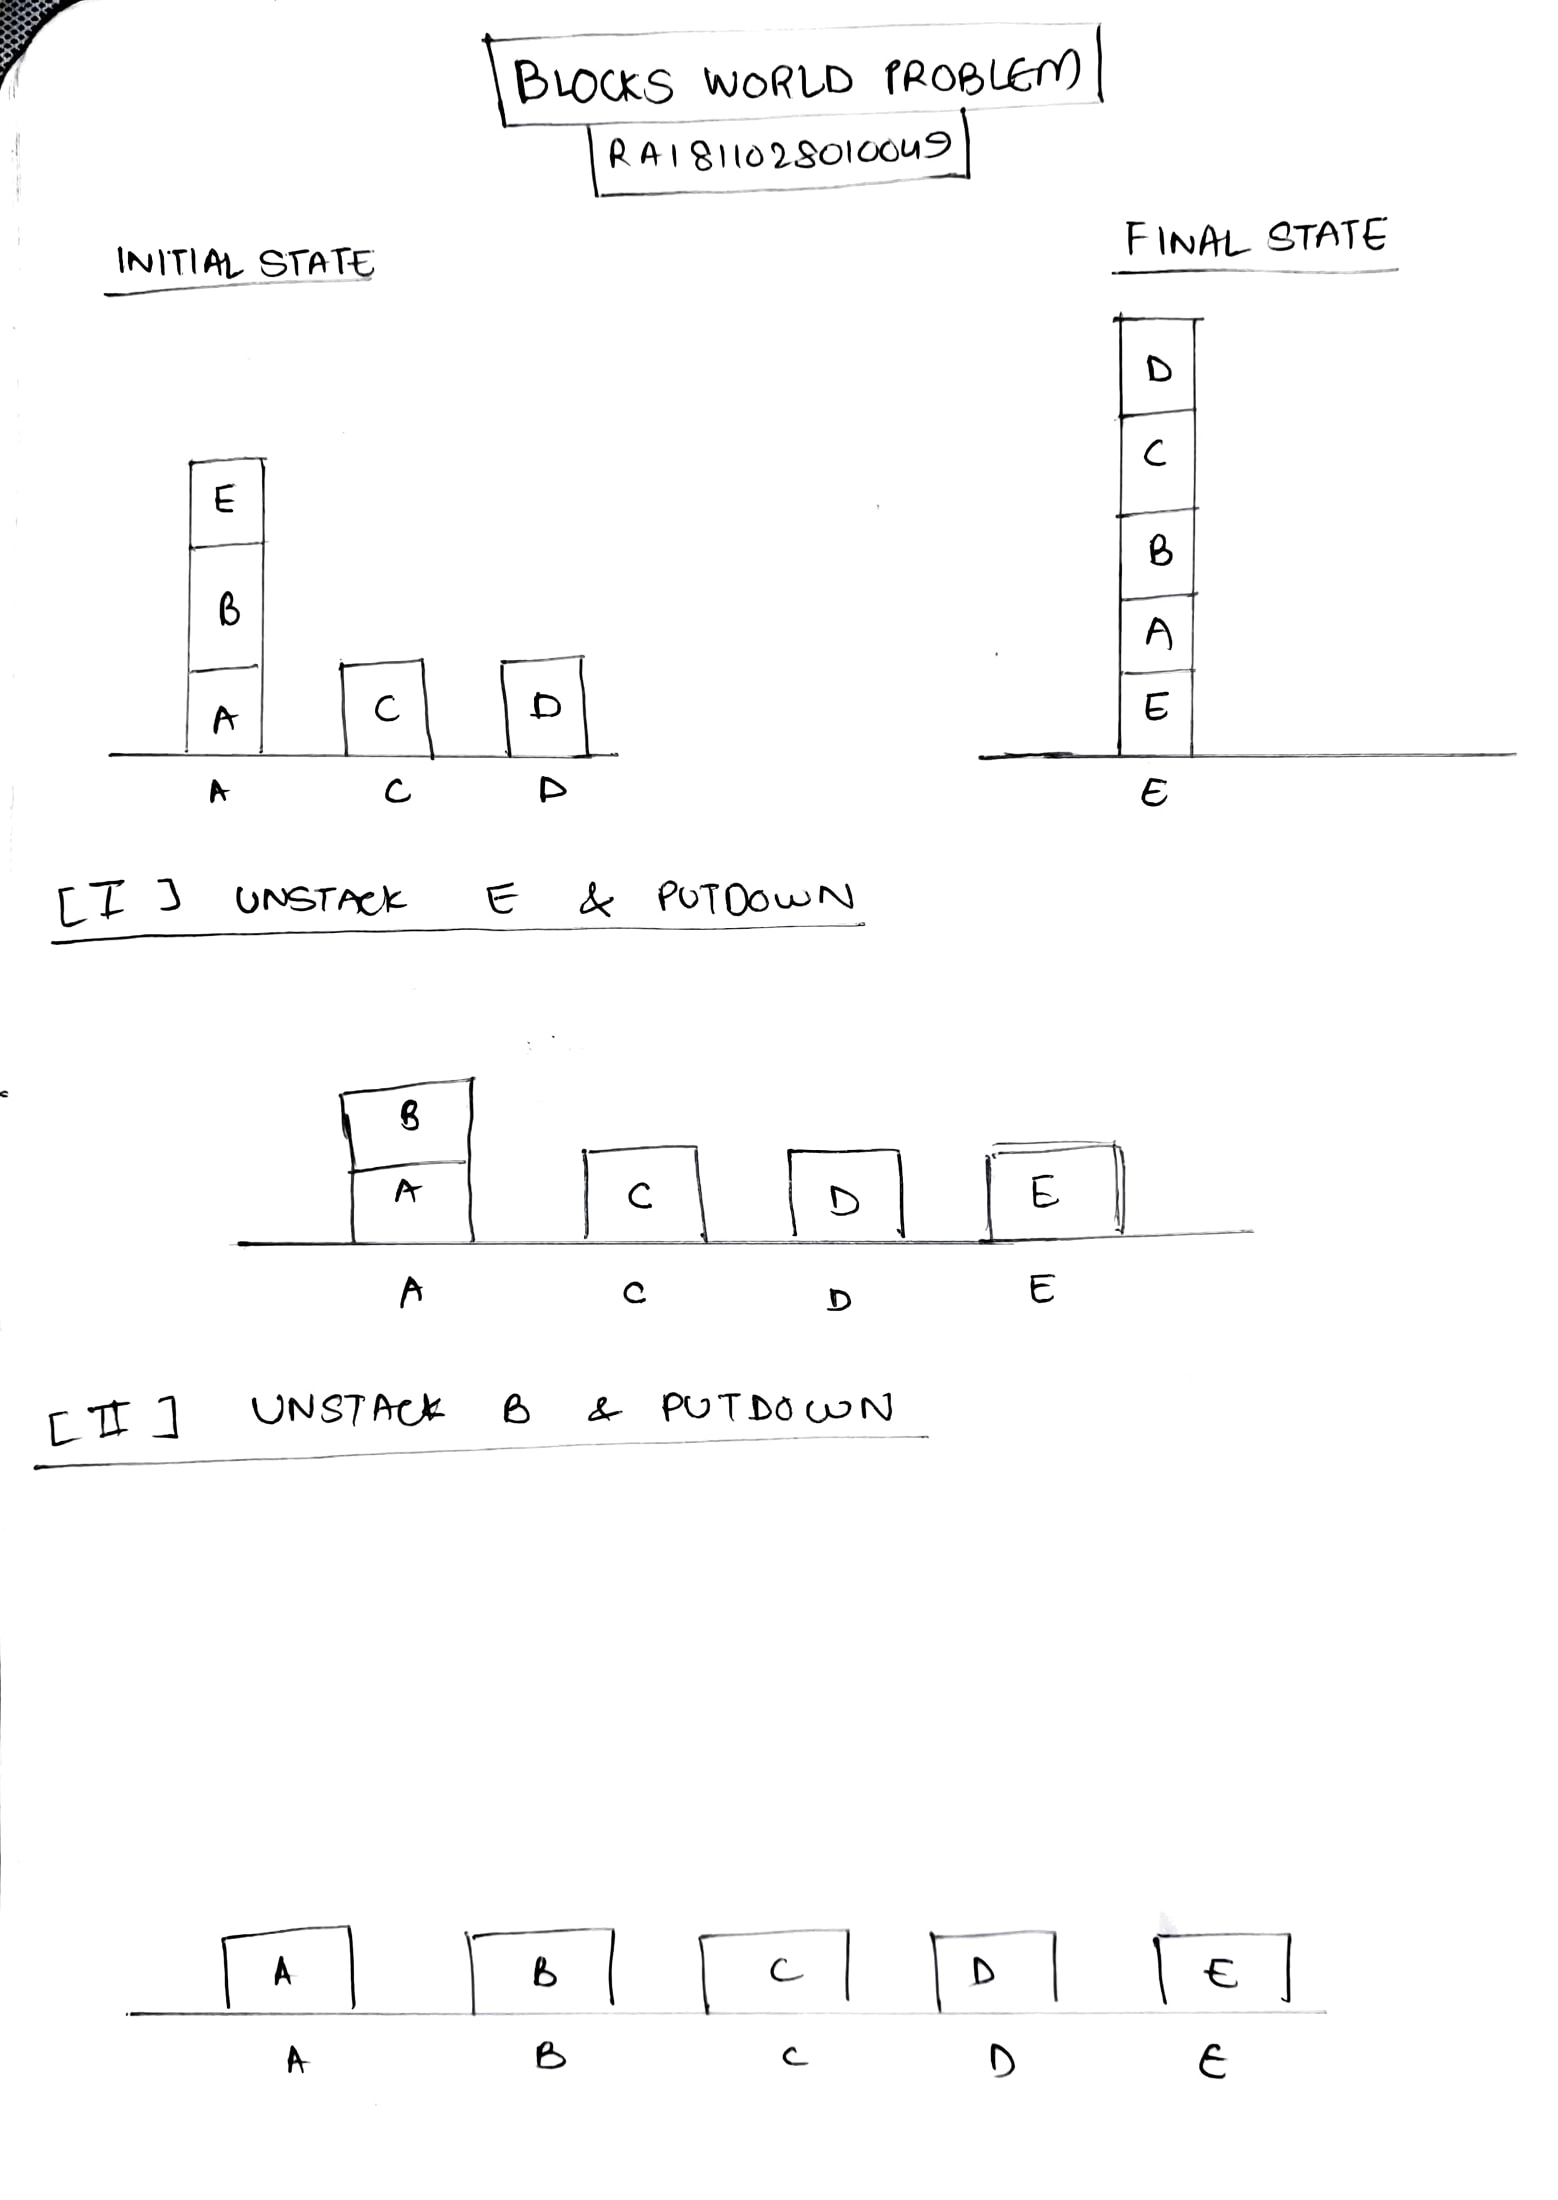 BLOCKS WORLD PROBLEM
RA1811028010049
INITIAL STATE
FINAL STATE
E
B
A
C
D
A C D
D
C
B
A
E
E
[I] UNSTACK E & PUTDOWN
B
A
C
D
E
A C D E
[II] UNSTACK B & PUTDOWN
A B C D E
A B C D E